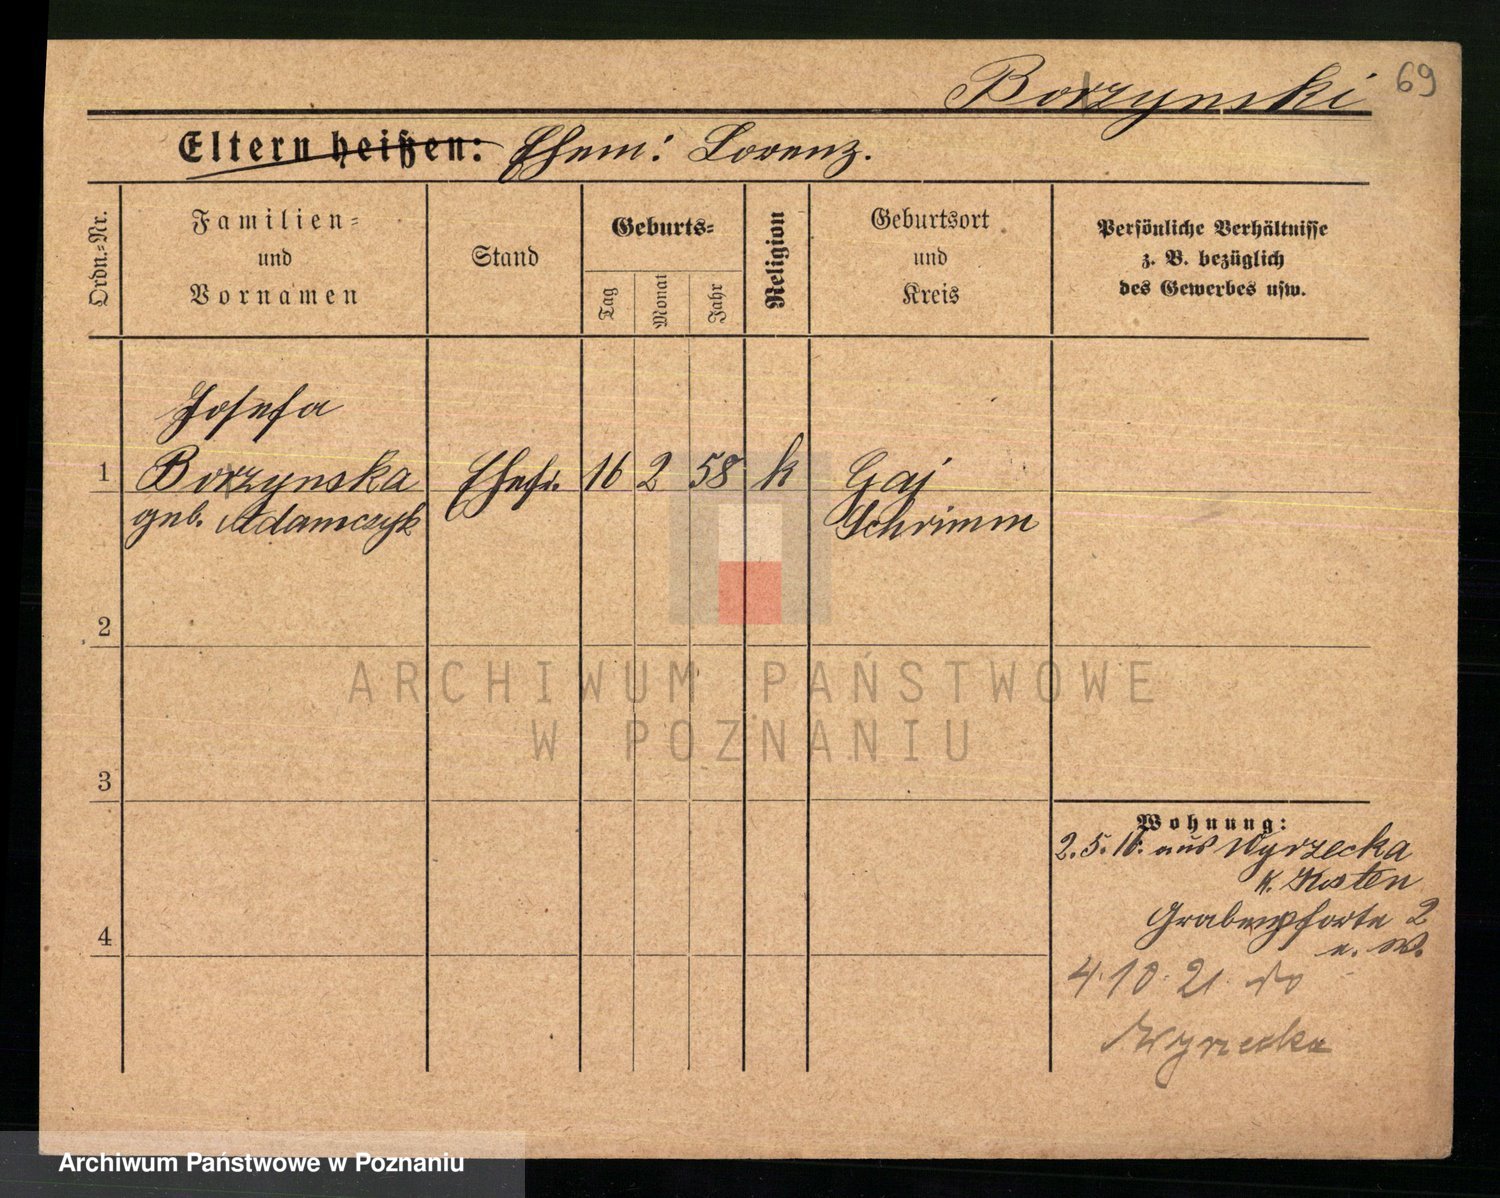 Borzynski 69
Eltern heißen: Ehem: Lorenz.
Ordn.-Nr.
Familien-
und
Vornamen
Stand
Geburts-
Tag
Monat
Jahr
Religion
Geburtsort
und
Kreis
Persönliche Verhältnisse
z. B. bezüglich
des Gewerbes usw.
Josefa
1 Borzynska Ehefr. 16 2 58 k Gaj
geb. Adamczyk Schrimm
2
ARCHIWUM PAŃSTWOWE
W POZNANIU
3
Wohnung:
2.5.16. aus Wyrzecka
K. Kosten
4 Grabenpforte 2
u. W.
4.10.21. do
Wyrzecka
Archiwum Państwowe w Poznaniu